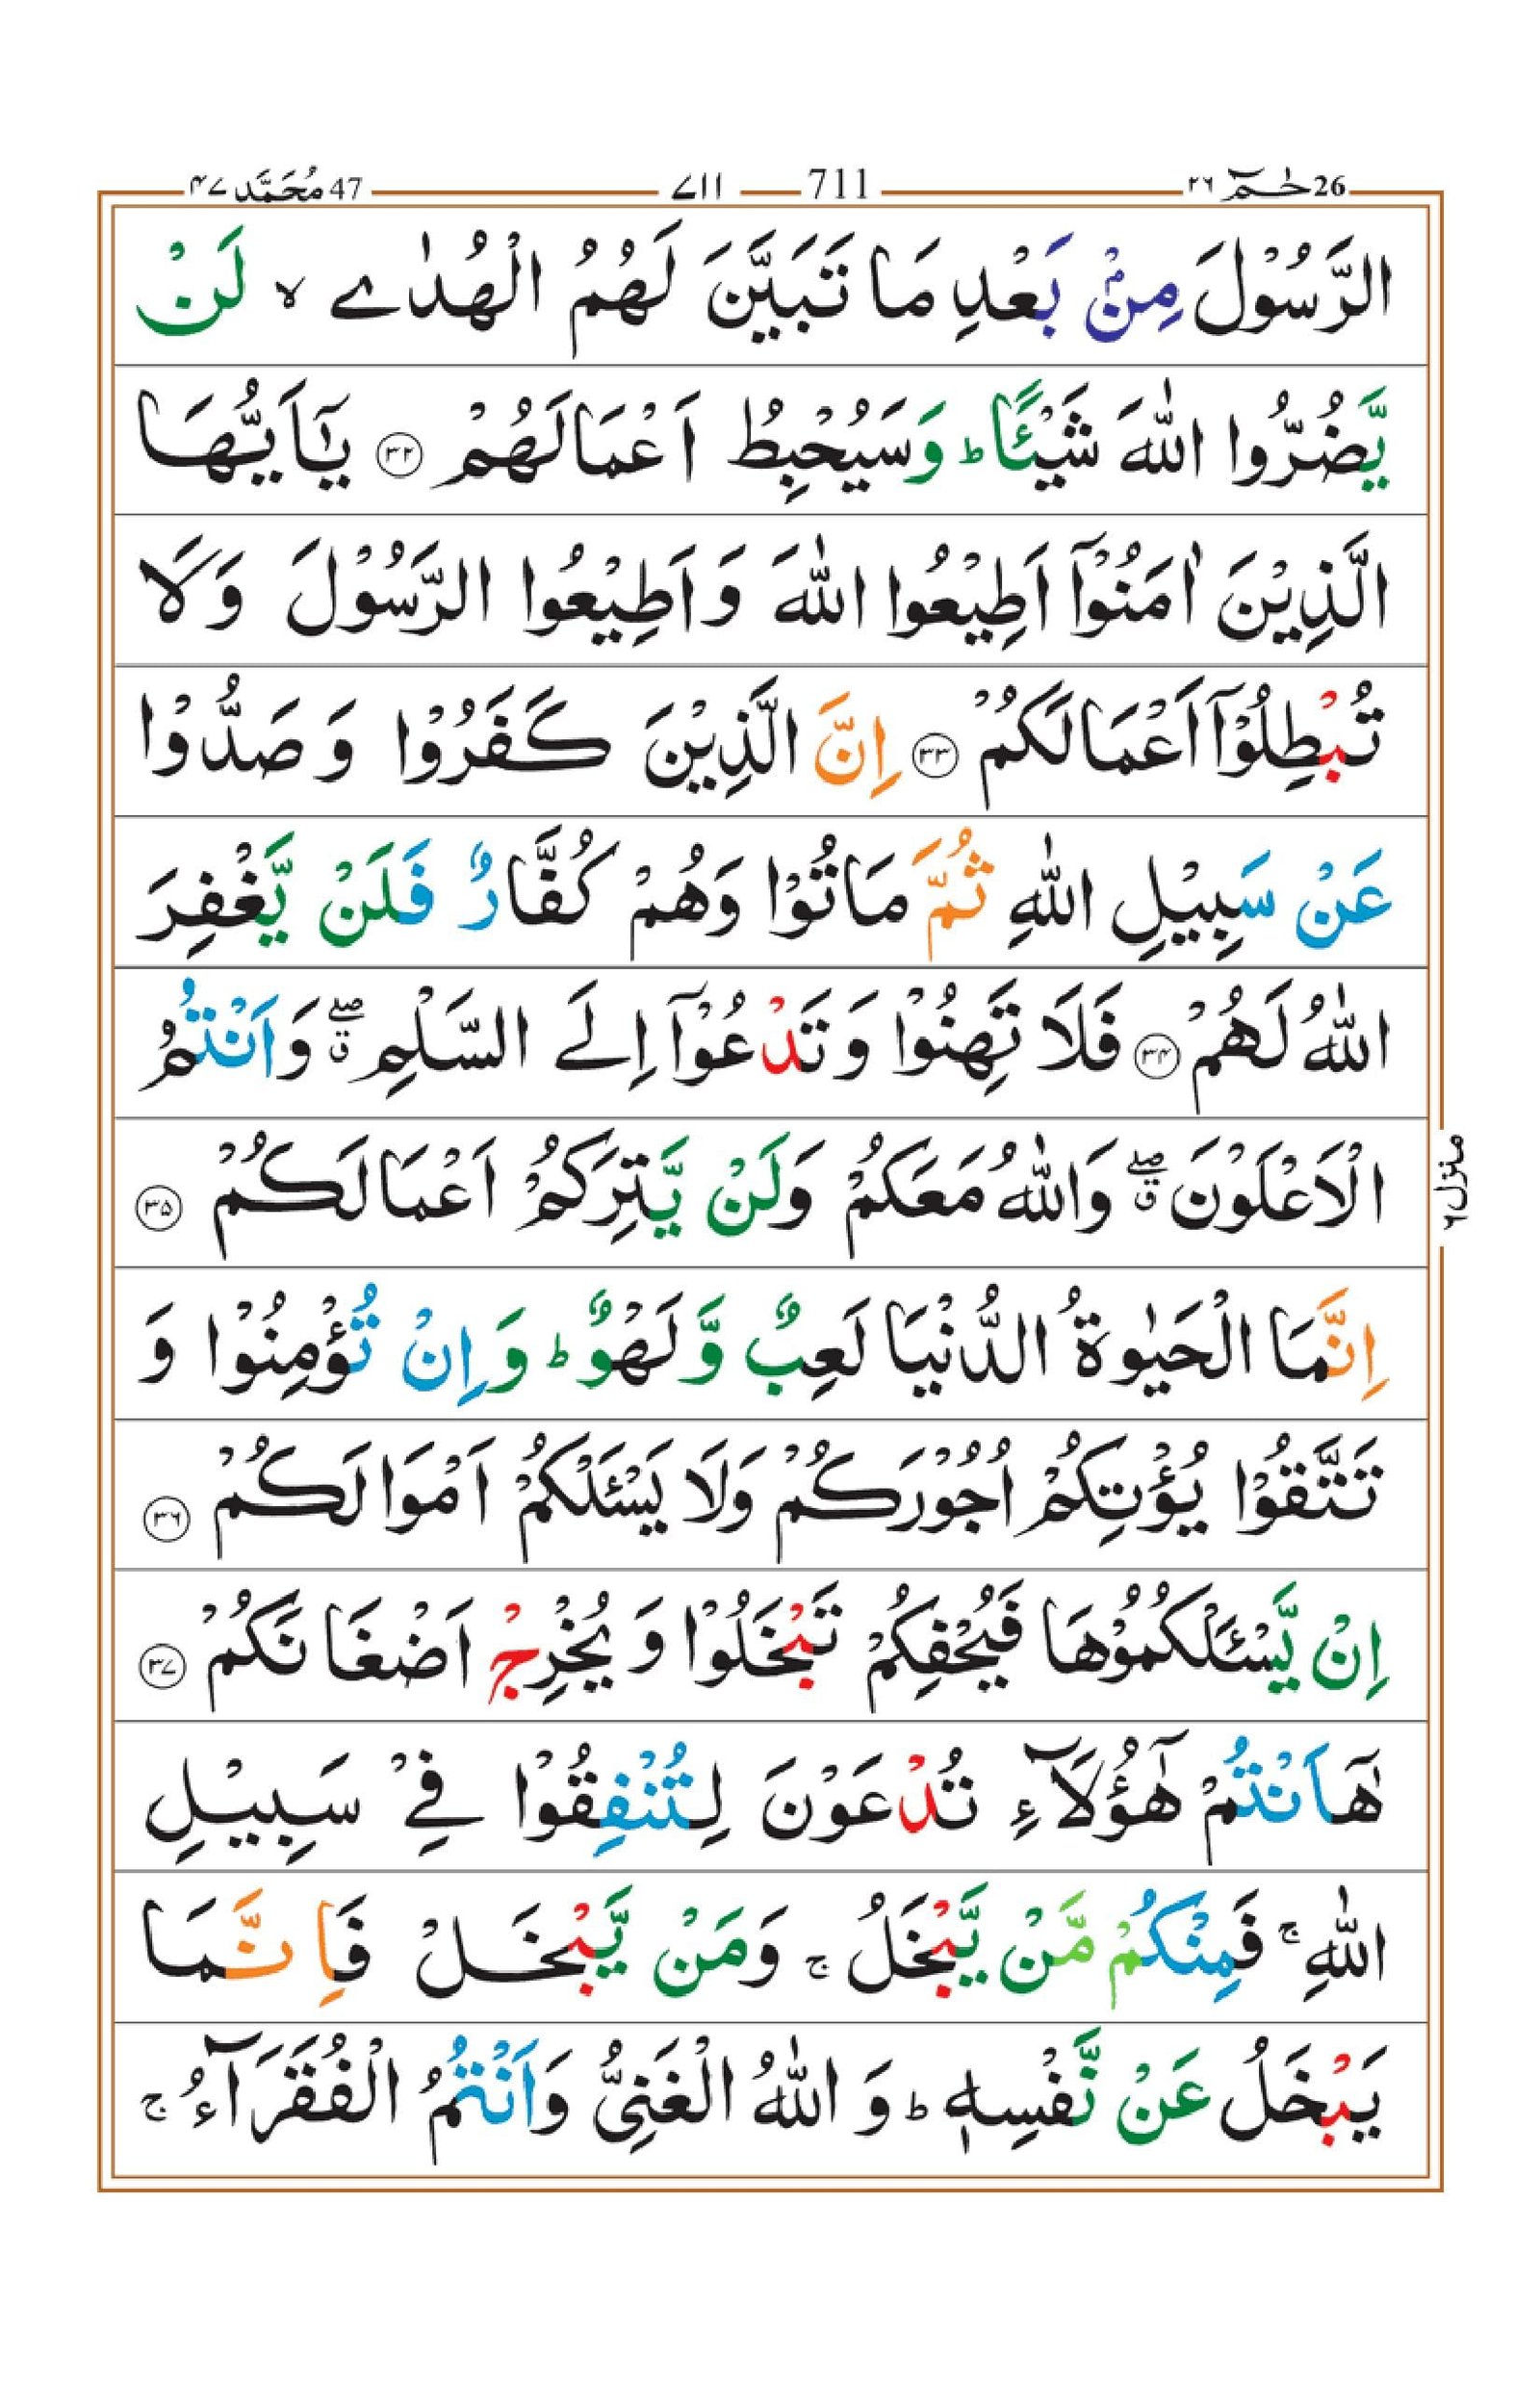 26 حٰمٓ ٢٦
711 ـــ ٧١١
47 مُحَمَّد ٤٧
الرَّسُوْلَ مِنْۢ بَعْدِ مَا تَبَيَّنَ لَهُمُ الْهُدٰى ۙ لَنْ
يَّضُرُّوا اللّٰهَ شَيْـًٔا ؕ وَسَيُحْبِطُ اَعْمَالَهُمْ ﴿۳۲﴾ يٰۤاَيُّهَا
الَّذِيْنَ اٰمَنُوْۤا اَطِيْعُوا اللّٰهَ وَاَطِيْعُوا الرَّسُوْلَ وَلَا
تُبْطِلُوْۤا اَعْمَالَكُمْ ﴿۳۳﴾ اِنَّ الَّذِيْنَ كَفَرُوْا وَ صَدُّوْا
عَنْ سَبِيْلِ اللّٰهِ ثُمَّ مَاتُوْا وَهُمْ كُفَّارٌ فَلَنْ يَّغْفِرَ
اللّٰهُ لَهُمْ ﴿۳۴﴾ فَلَا تَهِنُوْا وَ تَدْعُوْۤا اِلَى السَّلْمِ ۖۗ وَاَنْتُمُ
الْاَعْلَوْنَ ۖۗ وَاللّٰهُ مَعَكُمْ وَلَنْ يَّتِرَكُمْ اَعْمَالَكُمْ ﴿۳۵﴾
اِنَّمَا الْحَيٰوةُ الدُّنْيَا لَعِبٌ وَّ لَهْوٌ ؕ وَ اِنْ تُؤْمِنُوْا وَ
تَتَّقُوْا يُؤْتِكُمْ اُجُوْرَكُمْ وَلَا يَسْـَٔلْكُمْ اَمْوَالَكُمْ ﴿۳۶﴾
اِنْ يَّسْـَٔلْكُمُوْهَا فَيُحْفِكُمْ تَبْخَلُوْا وَ يُخْرِجْ اَضْغَانَكُمْ ﴿۳۷﴾
هٰۤاَنْتُمْ هٰۤؤُلَآءِ تُدْعَوْنَ لِتُنْفِقُوْا فِيْ سَبِيْلِ
اللّٰهِ ۚ فَمِنْكُمْ مَّنْ يَّبْخَلُ ۚ وَمَنْ يَّبْخَلْ فَاِنَّمَا
يَبْخَلُ عَنْ نَّفْسِهٖ ؕ وَ اللّٰهُ الْغَنِيُّ وَاَنْتُمُ الْفُقَرَآءُ ۚ
منزل ٦